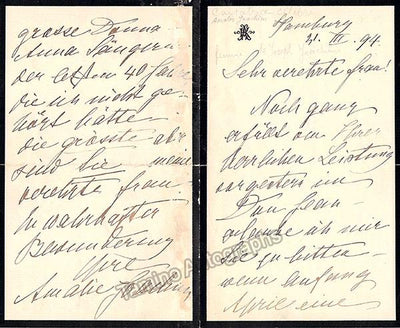 Hamburg
21. III. 94.
Sehr verehrte Frau!
Noch ganz
erfüllt von Ihrer
herrlichen Leistung
vorgestern im
Don Juan
erlaube ich mir
Sie zu bitten
wenn Anfang
April eine
grosse Donna
Anna Sängerin
der letzten 40 Jahre
die ich nicht ge-
hört hatte
die grösste aber
sind Sie meine
verehrte Frau
In wahrhafter
Bewunderung
Ihre
Amalie Joachim
Tamino Autographs